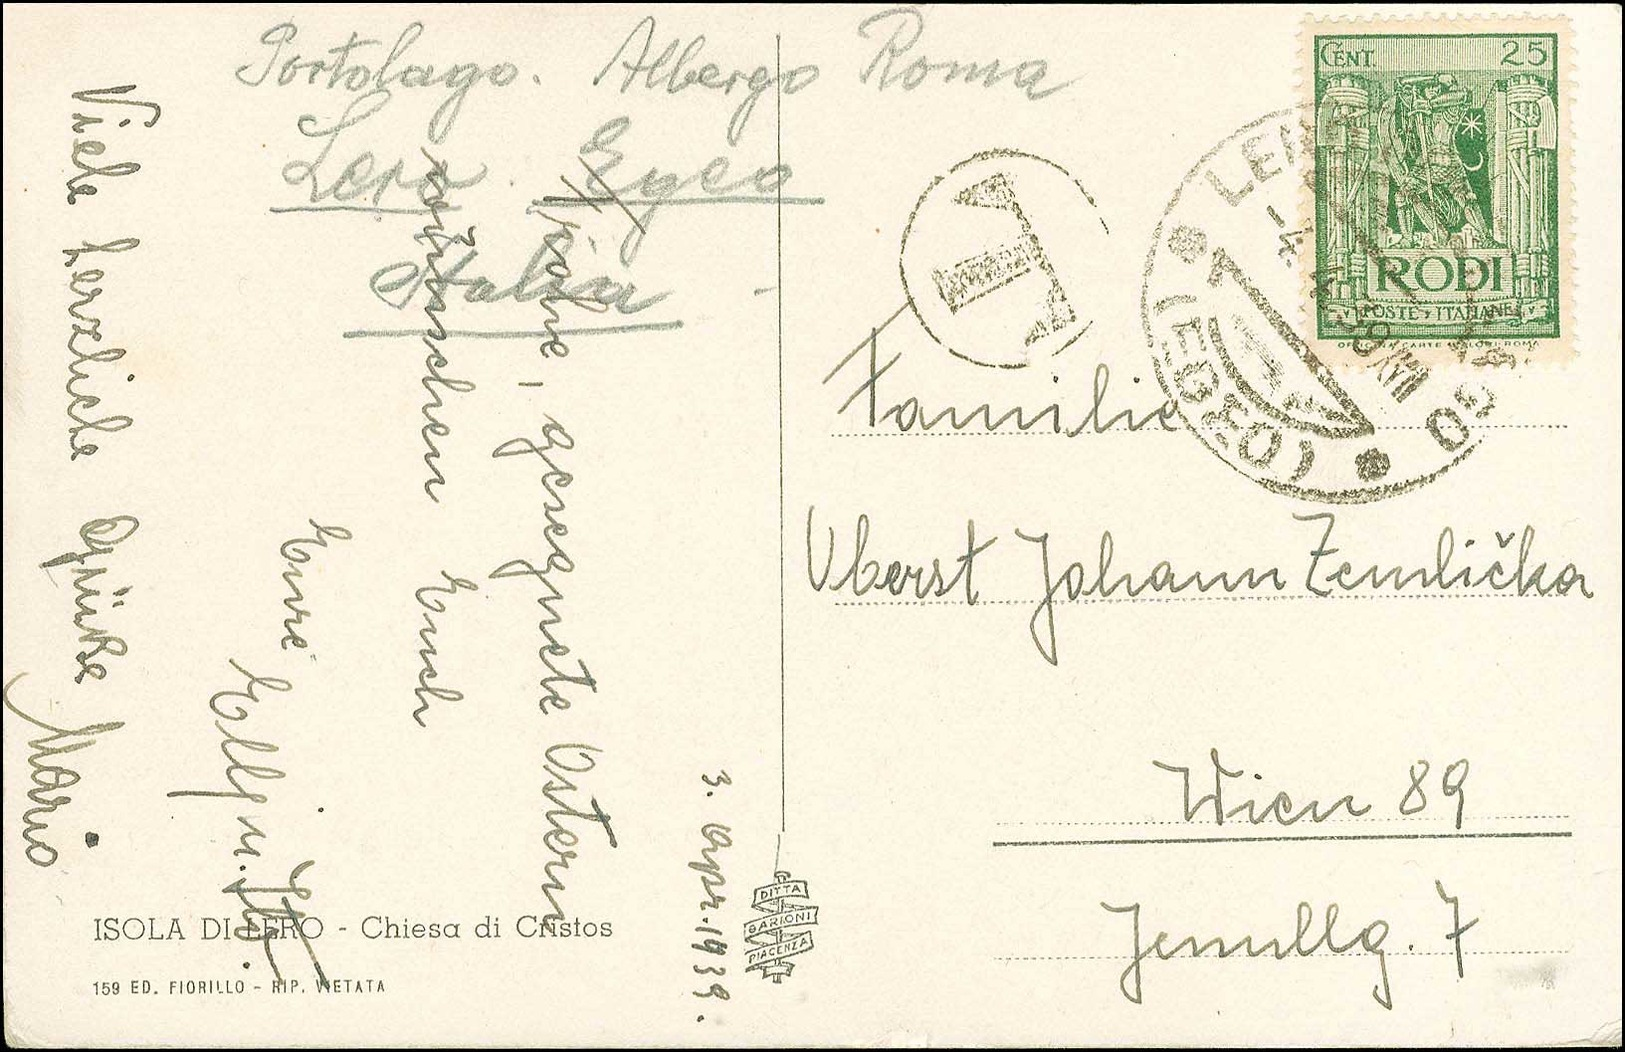 Portolago. Albergo Roma
Lero. Egeo
Italia
Frohe, gesegnete Ostern
wünschen Euch
Eure
Viele herzliche Grüße
Mario
3. Apr. 1939.
ISOLA DI LERO - Chiesa di Cristos
159 ED. FIORILLO - RIP. VIETATA
DITTA
GARIONI
PIACENZA
CENT. 25
RODI
POSTE ITALIANE
T
(EGEO)
Familie
Oberst Johann Zemlička
Wien 89
7